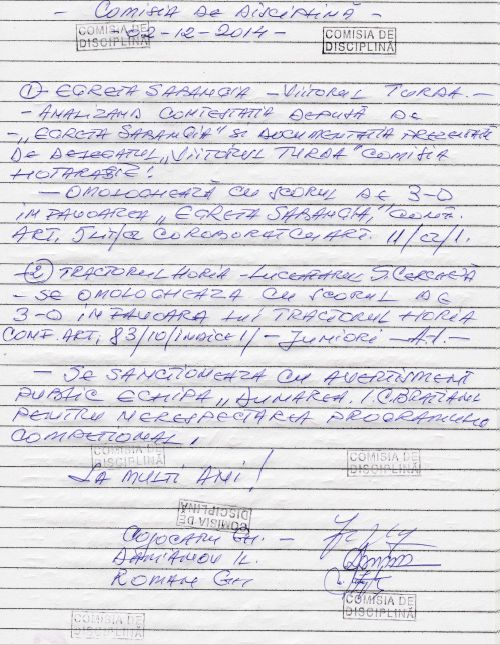 - COMISIA DE DISCIPLINĂ -
COMISIA DE
DISCIPLINĂ
-02-12-2014-
COMISIA DE
DISCIPLINĂ
① - EGRETA SARANGIA - VIITORUL TURDA. -
- ANALIZAND CONTESTATIA DEPUSĂ DE
- „EGRETA SARANGIA" SI DOCUMENTATIA PREZENTATĂ
DE DELEGATUL „VIITORUL TURDA" COMISIA
HOTARASTE:
- OMOLOGHEAZĂ CU SCORUL DE 3-0
IN FAVOAREA „EGRETA SARANGIA," CONF.
ART. 5 LIT/a COROBORAT CU ART. 11/a/1.
② TRACTORUL HORIA - LUCEAFARUL S. CERCHEZĂ
- SE OMOLOGHEAZA CU SCORUL DE
3-0 IN FAVOARA LUI TRACTORUL HORIA
CONF. ART. 83/10/INDICE 1/ - JUNIORI - A1. -
- SE SANCTIONEAZA CU AVERTISMENT
PUBLIC ECHIPA „DUNAREA I.C. BRATIANU
PENTRU NERESPECTAREA PROGRAMULUI
COMPETITIONAL.
COMISIA DE
DISCIPLINĂ
COMISIA DE
DISCIPLINĂ
LA MULTI ANI!
COMISIA DE
DISCIPLINĂ
COJOCARU GH. -
DAMIANOV IL.
ROMAN GH
COMISIA DE
DISCIPLINĂ
COMISIA DE
DISCIPLINĂ